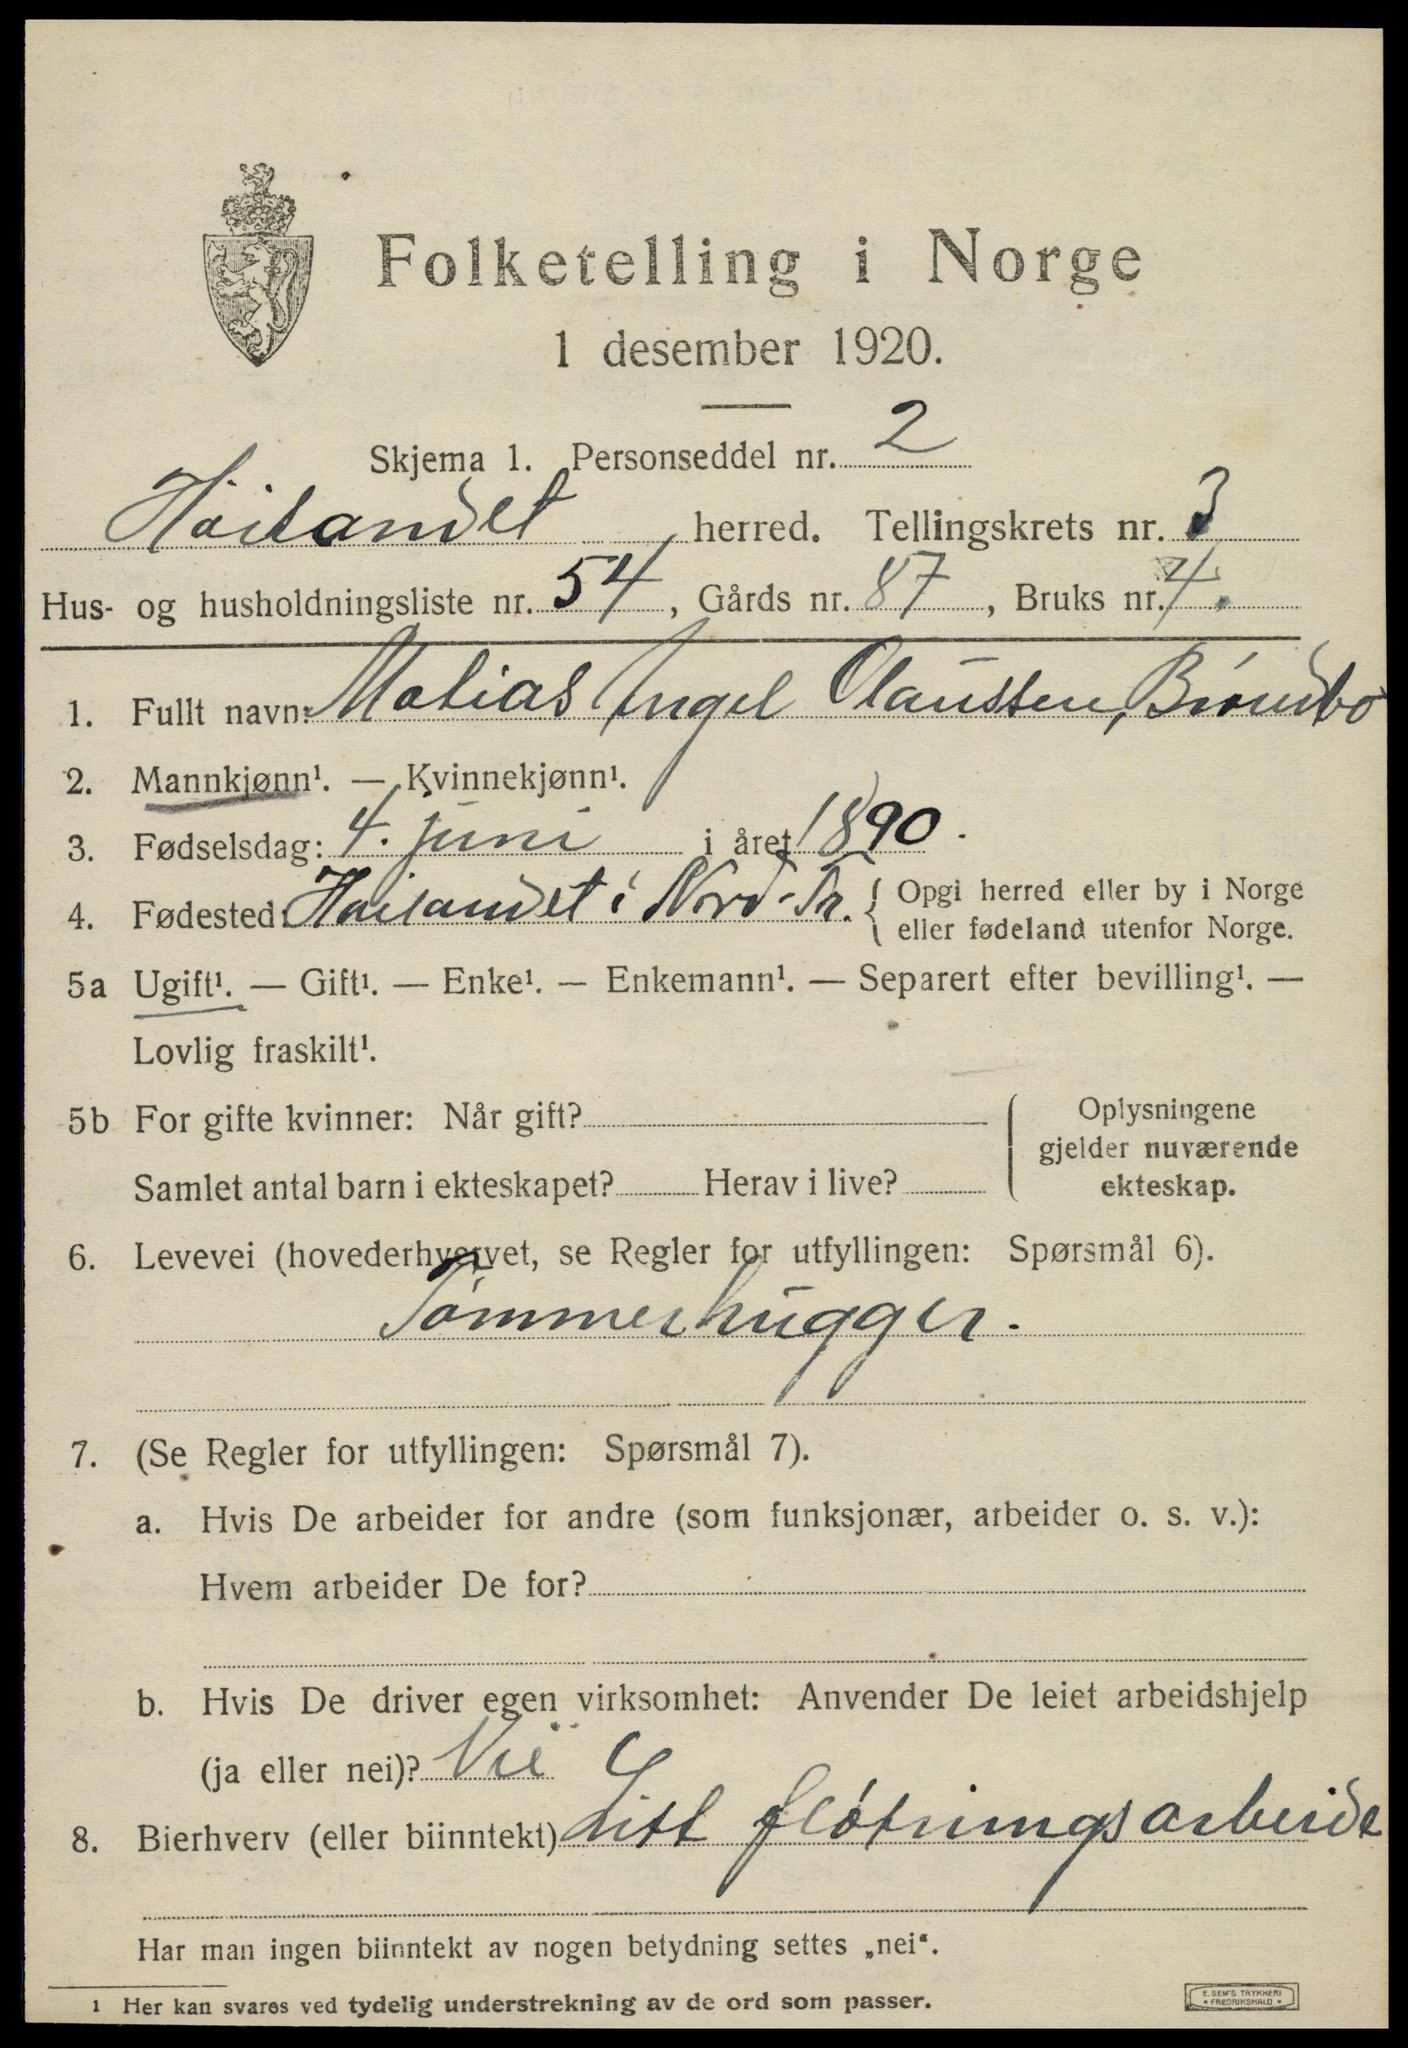 Folketelling i Norge
1 desember 1920.
Skjema 1. Personseddel nr. 2
Høilandet herred. Tellingskrets nr. 3
Hus- og husholdningsliste nr. 54, Gårds nr. 87, Bruks nr. 4.
1. Fullt navn: Matias Ingel Olaussen, Brømbo
2. Mannkjønn¹. — Kvinnekjønn¹.
3. Fødselsdag: 4. juni i året 1890.
4. Fødested: Høilandet i Nord-Tr. { Opgi herred eller by i Norge
eller fødeland utenfor Norge.
5a Ugift¹. — Gift¹. — Enke¹. — Enkemann¹. — Separert efter bevilling¹. —
Lovlig fraskilt¹.
5b For gifte kvinner: Når gift? { Oplysningene
gjelder nuværende
Samlet antal barn i ekteskapet? Herav i live? ekteskap.
6. Levevei (hovederhvervet, se Regler for utfyllingen: Spørsmål 6).
Tømmerhugger.
7. (Se Regler for utfyllingen: Spørsmål 7).
a. Hvis De arbeider for andre (som funksjonær, arbeider o. s. v.):
Hvem arbeider De for?
b. Hvis De driver egen virksomhet: Anvender De leiet arbeidshjelp
(ja eller nei)? Nei
8. Bierhverv (eller biinntekt) Litt fløtningsarbeide
Har man ingen biinntekt av nogen betydning settes „nei“.
1 Her kan svares ved tydelig understrekning av de ord som passer.
E. SEM'S TRYKKERI
• FREDRIKSHALD •